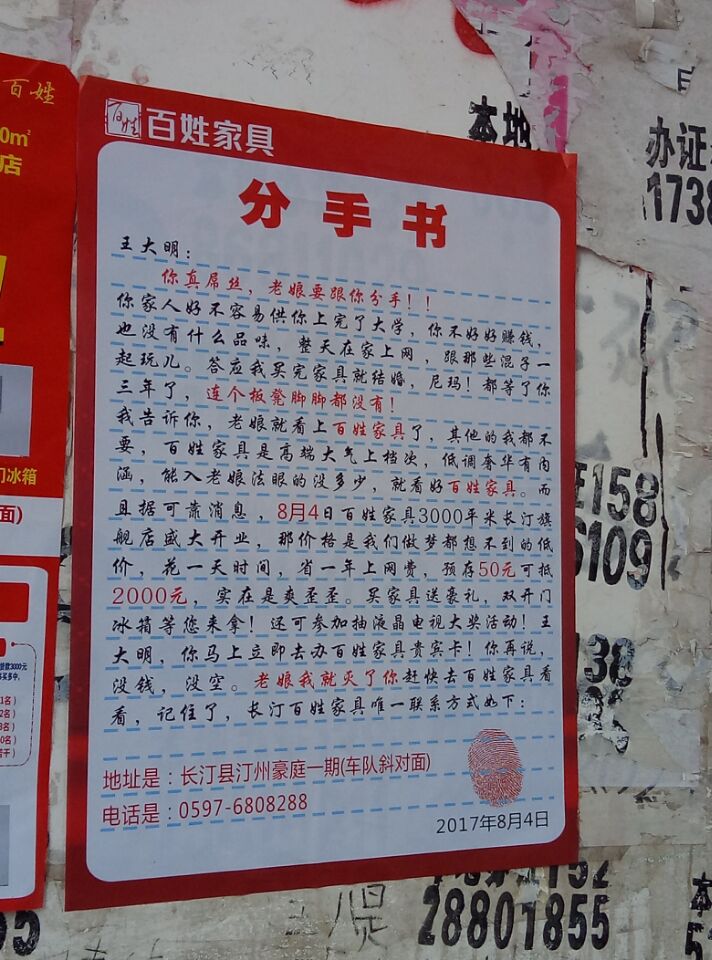 百姓
百姓家具
分手书
王大明：
你真屌丝，老娘要跟你分手！！
你家人好不容易供你上完了大学，你不好好赚钱，
也没有什么品味，整天在家上网，跟那些混子一
起玩儿。答应我买完家具就结婚，尼玛！都等了你
三年了，连个板凳脚脚都没有！
我告诉你，老娘就看上百姓家具了，其他的我都不
要，百姓家具是高端大气上档次，低调奢华有内
涵，能入老娘法眼的没多少，就看好百姓家具。而
且据可靠消息，8月4日百姓家具3000平米长汀旗
舰店盛大开业，那价格是我们做梦都想不到的低
价，花一天时间，省一年上网费，预存50元可抵
2000元，实在是爽歪歪。买家具送豪礼，双开门
冰箱等您来拿！还可参加抽液晶电视大奖活动！王
大明，你马上立即去办百姓家具贵宾卡！你再说，
没钱，没空。老娘我就灭了你赶快去百姓家具看
看，记住了，长汀百姓家具唯一联系方式如下：
地址是：长汀县汀州豪庭一期(车队斜对面)
电话是：0597-6808288
2017年8月4日
百姓
0㎡
店
门冰箱
面)
本地
办证
1738
158
6109
138
28801855